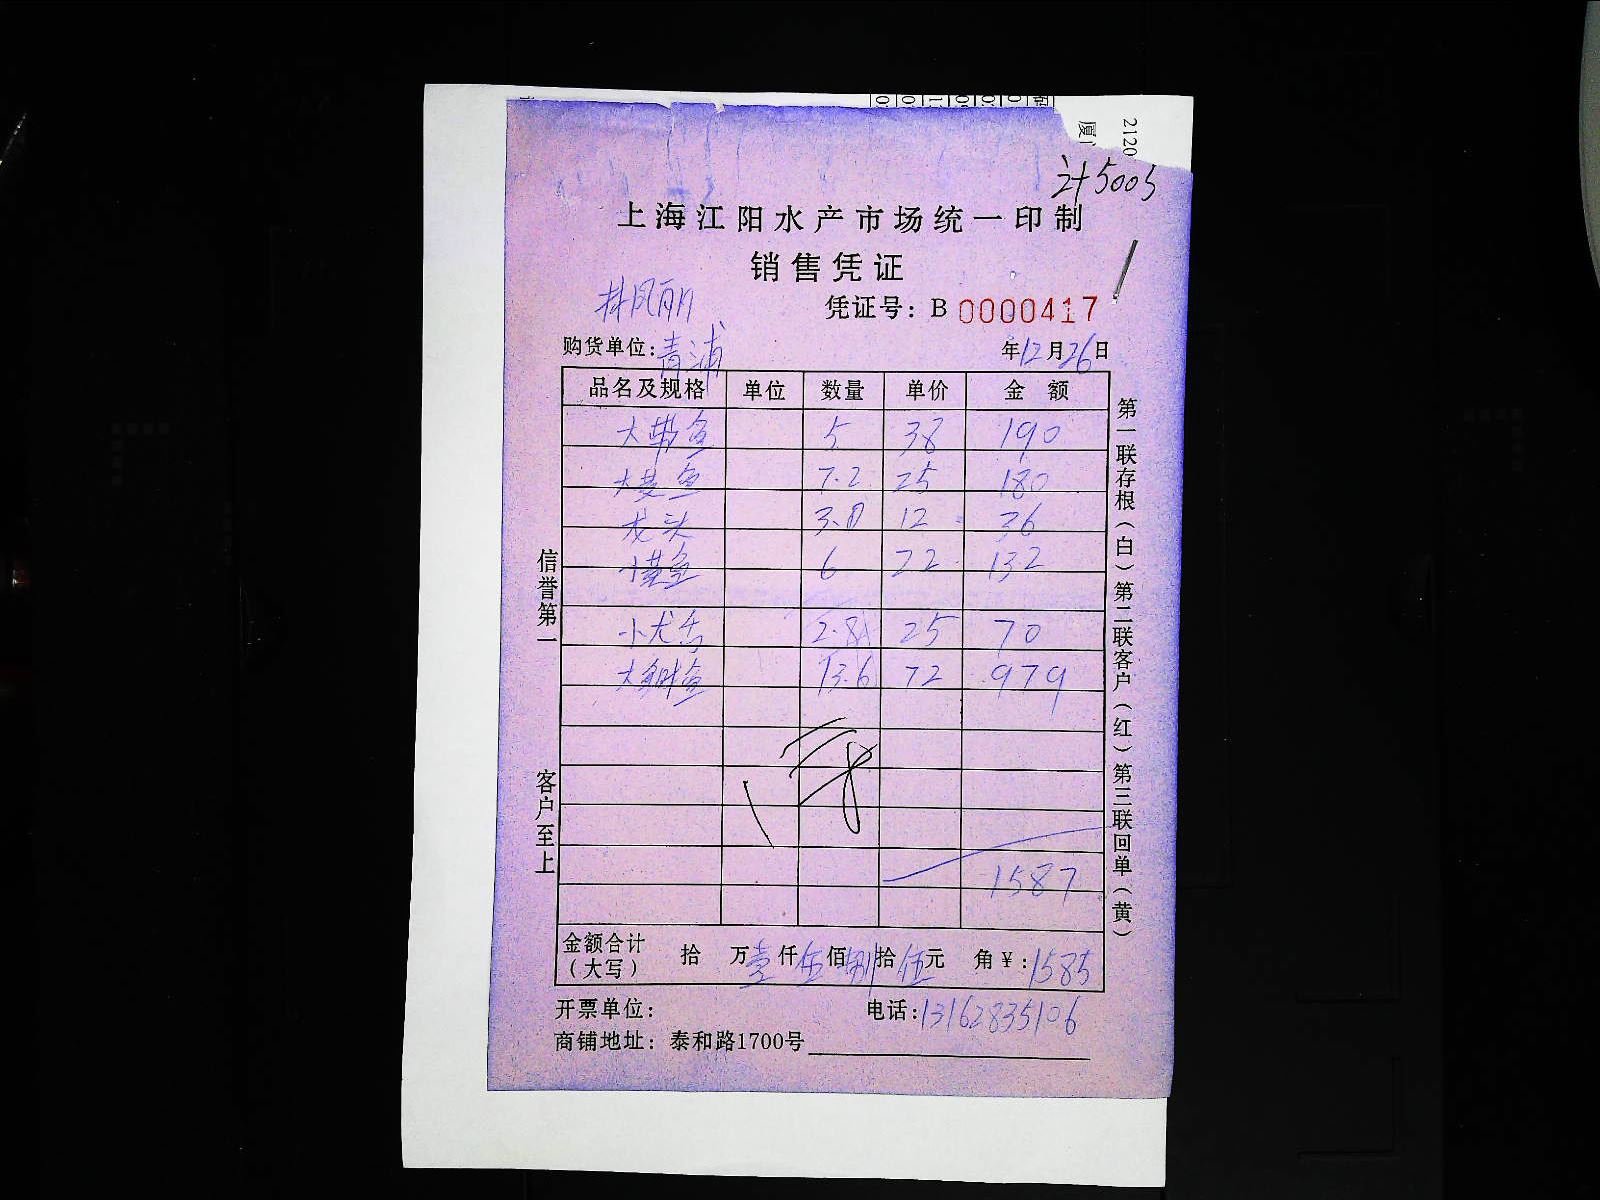 2120
厦门
计5005
上海江阳水产市场统一印制
销售凭证
林凤丽
凭证号：B 0000417
购货单位：青浦 年12月26日
品名及规格 单位 数量 单价 金额
大带鱼 5 38 190
大黄鱼 7.2 25 180
龙头 3.0 12 36
小黄鱼 6 22 132
小龙舌 2.8 25 70
大鲳鱼 13.6 72 979
1587
金额合计（大写） 拾 万壹仟伍佰捌拾伍元 角￥：1585
开票单位： 电话：13162835106
商铺地址：泰和路1700号
信誉第一 客户至上
第一联存根（白）第二联客户（红）第三联回单（黄）